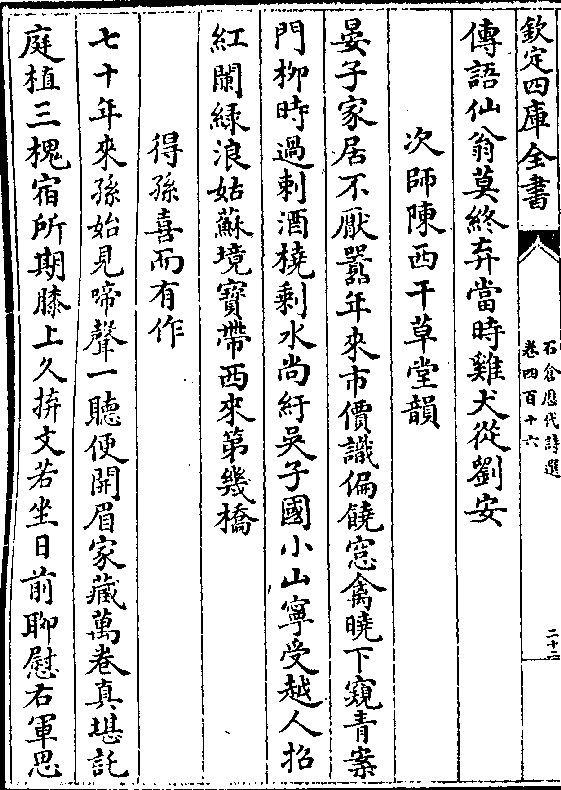 欽定四庫全書
石倉歷代詩選
卷四百十六
二十二
傳語仙翁莫終弃當時雞犬從劉安
次師陳西干草堂韻
晏子家居不厭囂年來市價識偏饒窓禽曉下窺青案
門栁時過刺酒橈剩水尚紆吳子國小山寧受越人招
紅闌緑浪姑蘇境寳帶西來第幾橋
得孫喜而有作
七十年來孫始見啼聲一聽便開眉家藏萬卷真堪託
庭植三槐宿所期膝上久拚文若坐日前聊慰右軍思